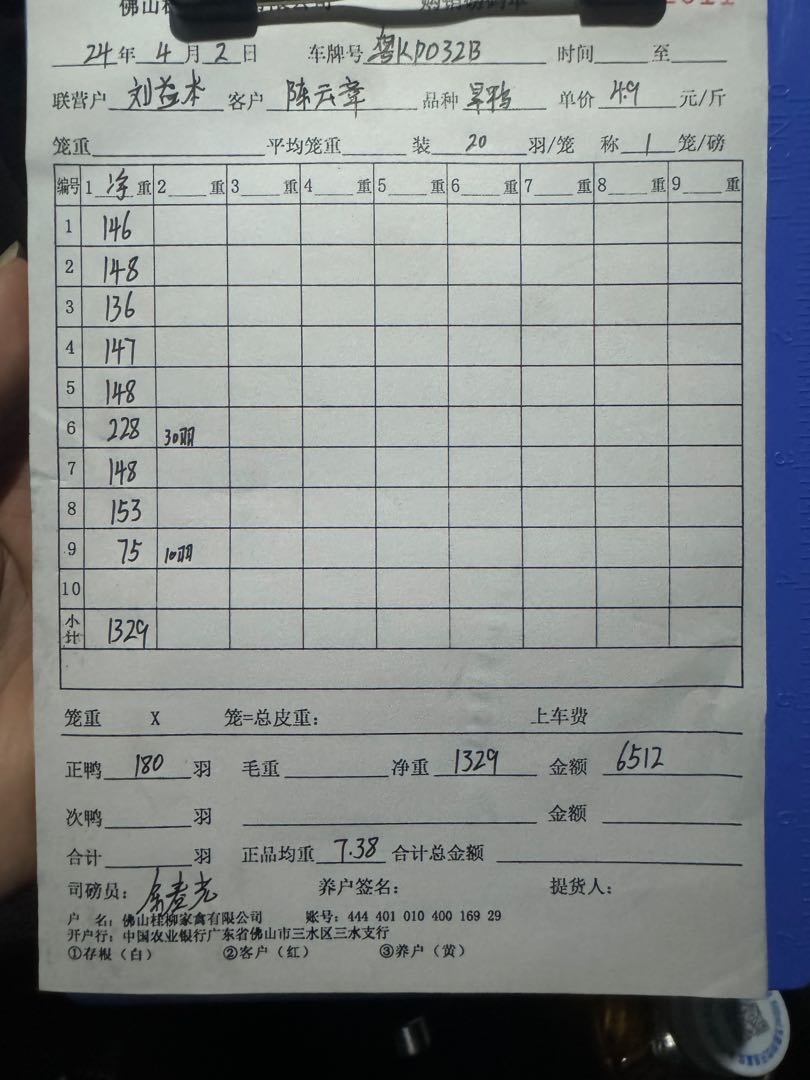 佛山桂 购销磅码单
24年 4月 2日 车牌号 粤KP032B 时间 至
联营户 刘益本 客户 陈云章 品种 旱鸭 单价 4.9 元/斤
笼重 平均笼重 装 20 羽/笼 称 1 笼/磅
编号 1 净 重 2 重 3 重 4 重 5 重 6 重 7 重 8 重 9 重
1 146
2 148
3 136
4 147
5 148
6 228 30羽
7 148
8 153
9 75 10羽
10
小计 1329
笼重 X 笼=总皮重: 上车费
正鸭 180 羽 毛重 净重 1329 金额 6512
次鸭 羽 金额
合计 羽 正品均重 7.38 合计总金额
司磅员: 养户签名: 提货人:
户 名: 佛山桂柳家禽有限公司 账号: 444 401 010 400 169 29
开户行: 中国农业银行广东省佛山市三水区三水支行
①存根(白) ②客户(红) ③养户(黄)